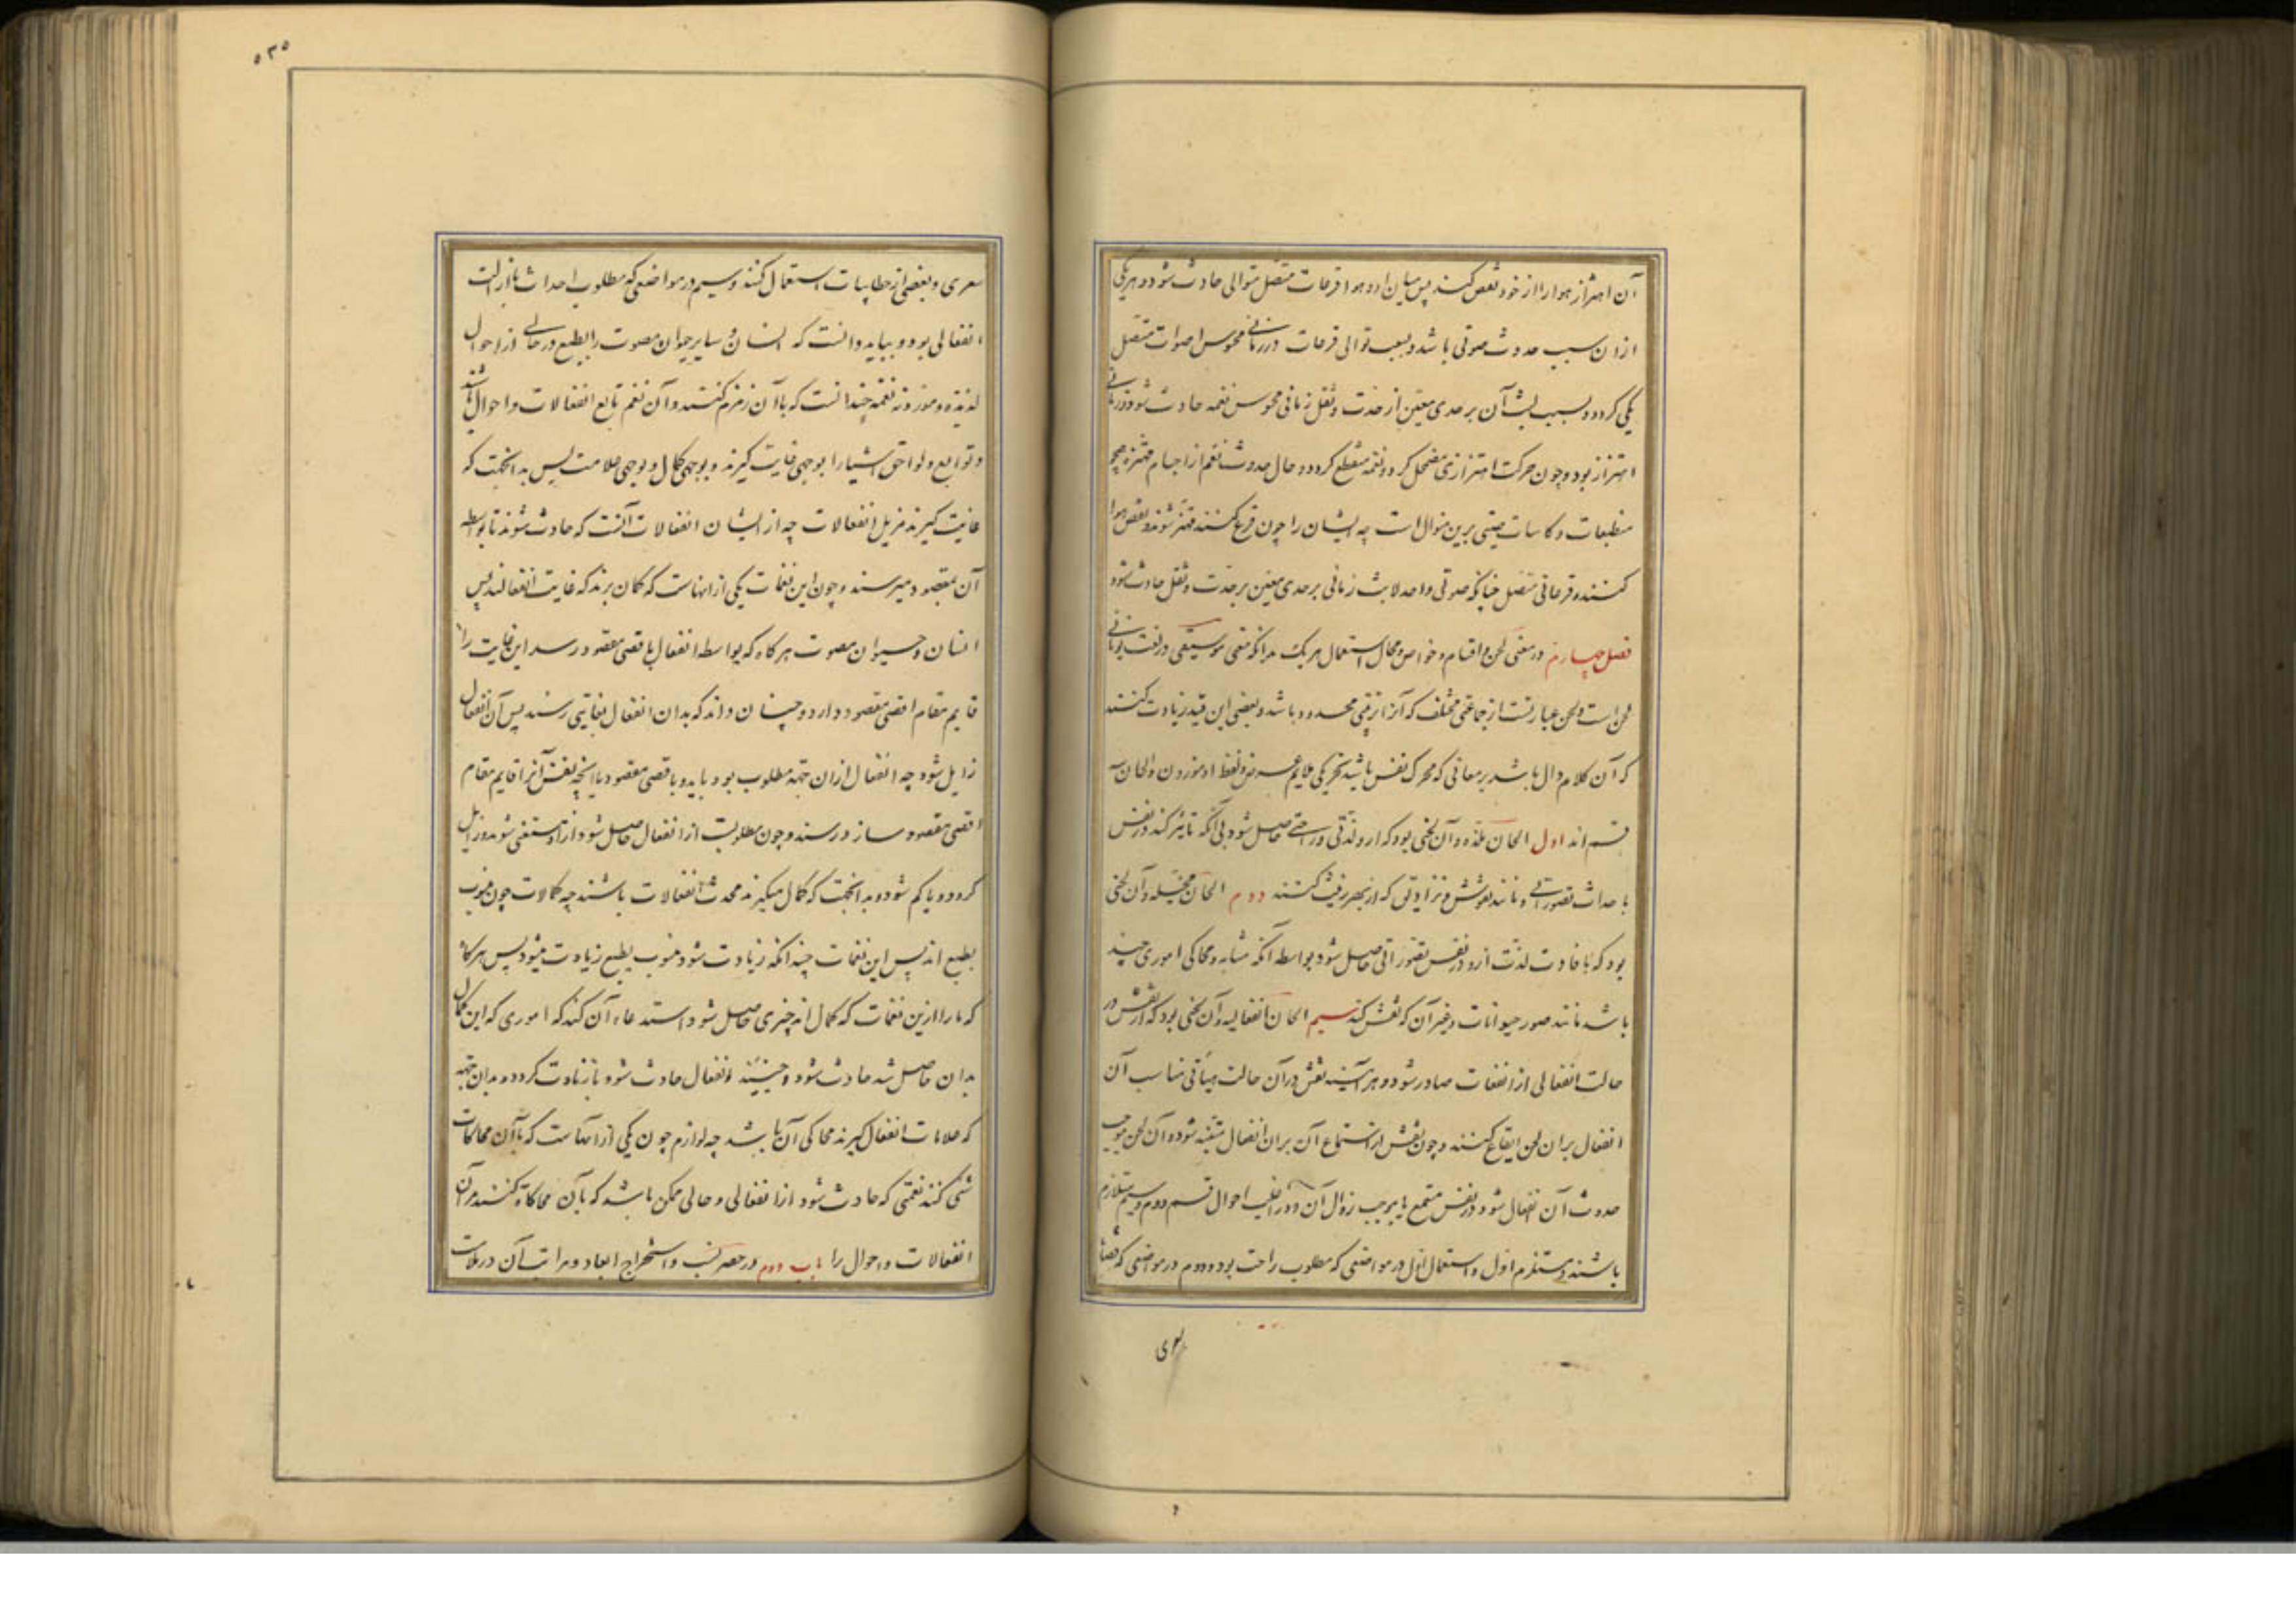 آن اهتزاز هوا را از خود نقض کنند پس میان او و هوا قرعات متصل متوالی حادث شود و هر یکی
از ان سبب حدوث صوتی باشد و بسبب توالی قرعات در زمانی محسوس اصوات متصل
یکی کردد و بسبب لبث آن بر حدی معین از حدت و ثقل زمانی محسوس نغمه حادث شود و در زمانی
اهتزاز بود و چون حرکت اهتزازی مضمحل کردد نغمه منقطع کردد و حال حدوث نغم از اجسام مهتزه همچو
و کاسات چینی برین منوال است چه ایشان را چون قرع کنند مهتز شوند و نقض هوا
کنند و قرعاتی متصل چنانکه صوتی واحد لابث زمانی بر حدی معین بر حدت و ثقل حادث شود
فصل چهارم در معنی لحن و اقسام و خواص و محال استعمال هر یک بدانکه معنی موسیقی در لغت یونانی
لحن است و لحن عبارتست از جماعتی مختلف که آنرا ترتیبی محدود باشد و بعضی این قید زیادت کنند
که آن کلام دال باشد بر معانی که محرک نفس باشد تحریکی ملایم عرض و لفظ او موزون و الحان سه
قسم اند اول الحان ملذه و آن لحنی بود که ازو لذتی و راحتی حاصل شود بی آنکه تاثیر کند در نفس
با حداث تصوراتی و مانند نقوش و تزاویقی که از بهر زینت کنند دوم الحان مخیله و آن لحنی
بود که با فادت لذت ازو در نفس تصوراتی حاصل شود بواسطه آنکه مشابه و محاکی اموری چند
باشد مانند صور حیوانات و غیر آن که نقش کنند سیم الحان انفعالیه و آن لحنی بود که از نفس در
حالت انفعالی از انفعات صادر شود و هر آینه نفس در آن حالت هیأتی مناسب آن
انفعال بر ان لحن ایقاع کنند و چون نفس از استماع آن بران انفعال متنبه شود و آن لحن موجب
حدوث آن انفعال شود در نفس مستمع یا موجب زوال آن و در اغلب احوال قسم دوم و سیم متلازم
باشند و مستلزم اول و استعمال اول در مواضعی که مطلوب راحت بود و دوم در مواضعی که قصاید
۵۳۵
شعری و بعضی از خطابیات استعمال کنند و سیم در مواضعی که مطلوب احداث یا ازالت
انفعالی بود و بباید دانست که انسان و سایر حیوان مصوت را بطبع در حالی از احوال
لذیذه و موذیه نغمه چندانست که باآن زمزم کنند و آن نغم تابع انفعالات و احوال باشد
و توابع و لواحق اشیا را بوجهی غایت کیرند و بوجهی کمال و بوجهی علامت پس بدانجهت که
غایت کیرند مزیل انفعالات چه از ایشان انفعالات آنست که حادث شوند تا بواسطه
آن بمقصود میرسند و چون این نغمات یکی از انهاست که کمان برند که غایت انفعالند پس
انسان و حیوان مصوت هرکاه که بواسطه انفعال باقصی مقصود رسد این غایت را
قایم مقام اقصی مقصود دارد و چنان داند که بدان انفعال بغایتی رسند پس آن انفعال
زایل شود چه انفعال از ان جهة مطلوب بود باید و باقصی مقصود یا بآنچه نفس آنرا قایم مقام
اقصی مقصود سازد رسند و چون مطلوبیت از انفعال حاصل شود ازو مستغنی شوند و زایل
کردد و یا کم شود و بدانجهت که کمال میکیرند محدث انفعالات باشند چه کمالات چون منسوب
بطبع اند پس این نغمات چندانکه زیادت شود منسوب بطبع زیادت میشود پس هرکاه
که ما را ازین نغمات که کمال اند چیزی حاصل شود استدعاء آن کند که اموری که این کمال
بدان حاصل شد حادث شود و حینئذ انفعال حادث شود یا زیادت کردد و بدان جهة
که علامات انفعال کیرند محاکی آن باشد چه لوازم چون یکی از انهاست که باآن محاکات
شی کنند نغمتی که حادث شود از انفعالی و حالی ممکن باشد که بآن محاکات کنند مر آن
انفعالات و احوال را باب دوم در حصر نسب و استخراج ابعاد و مراتب آن در ملایمت